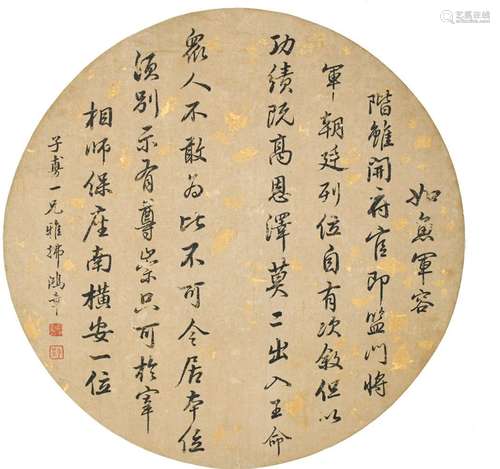 如魚軍容
階雖開府官即監門將
軍朝廷列位自有次敘但以
功績既高恩澤莫二出入王命
眾人不敢為比不可令居本位
須別示有尊崇只可於宰
相師保座南橫安一位
子壽一兄雅拂 鴻章